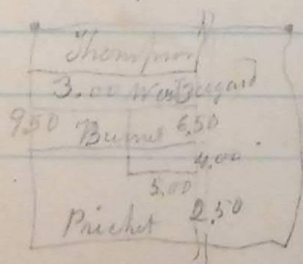 Thompson
3.00 West
950 Burnet 6.50
4.00
5.00
Prichet 2.50